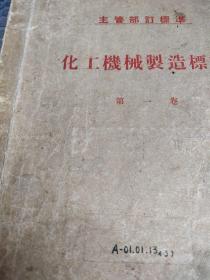 主管部訂標準
化工機械製造標
第一卷
A-01.01.13